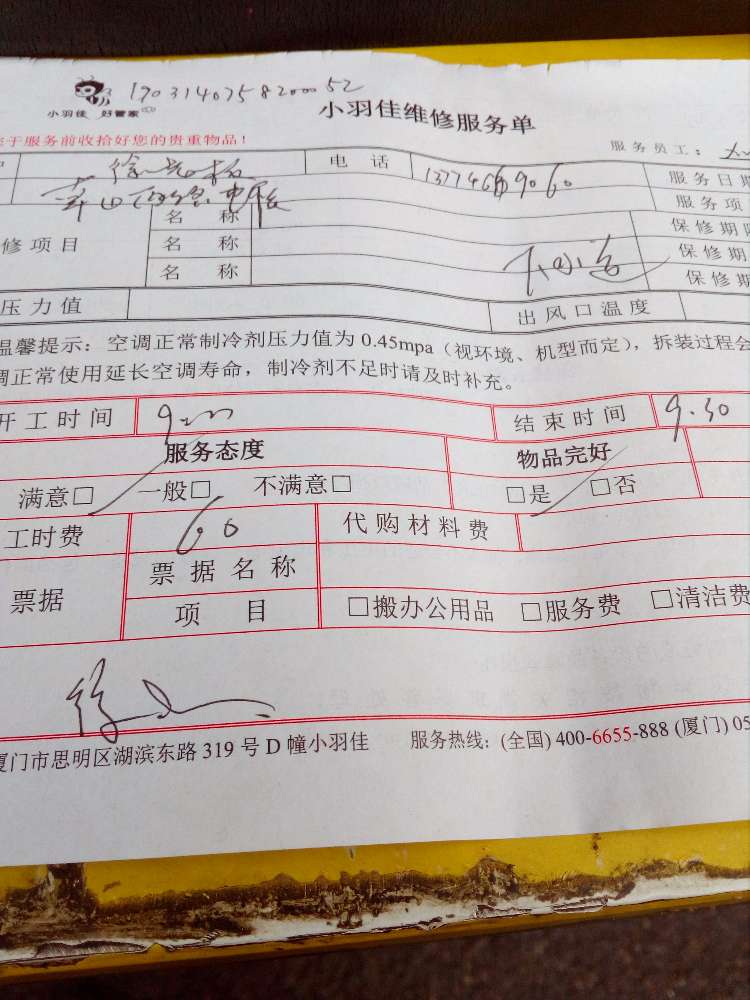 1903140758200052
小羽佳 好管家
小羽佳维修服务单
于服务前收拾好您的贵重物品!
服务员工:
电 话
服务日期
服务项
名 称
保修期限
修项目
名 称
保修期
名 称
保修期
压力值
出风口温度
温馨提示:空调正常制冷剂压力值为 0.45mpa(视环境、机型而定),拆装过程会
调正常使用延长空调寿命,制冷剂不足时请及时补充。
开工时间
结束时间 9.30
服务态度
物品完好
满意□ 一般□ 不满意□
□是 □否
工时费 60
代购材料费
票据
票据名称
项 目
□搬办公用品 □服务费 □清洁费
厦门市思明区湖滨东路 319 号 D 幢小羽佳 服务热线:(全国) 400-6655-888 (厦门) 05